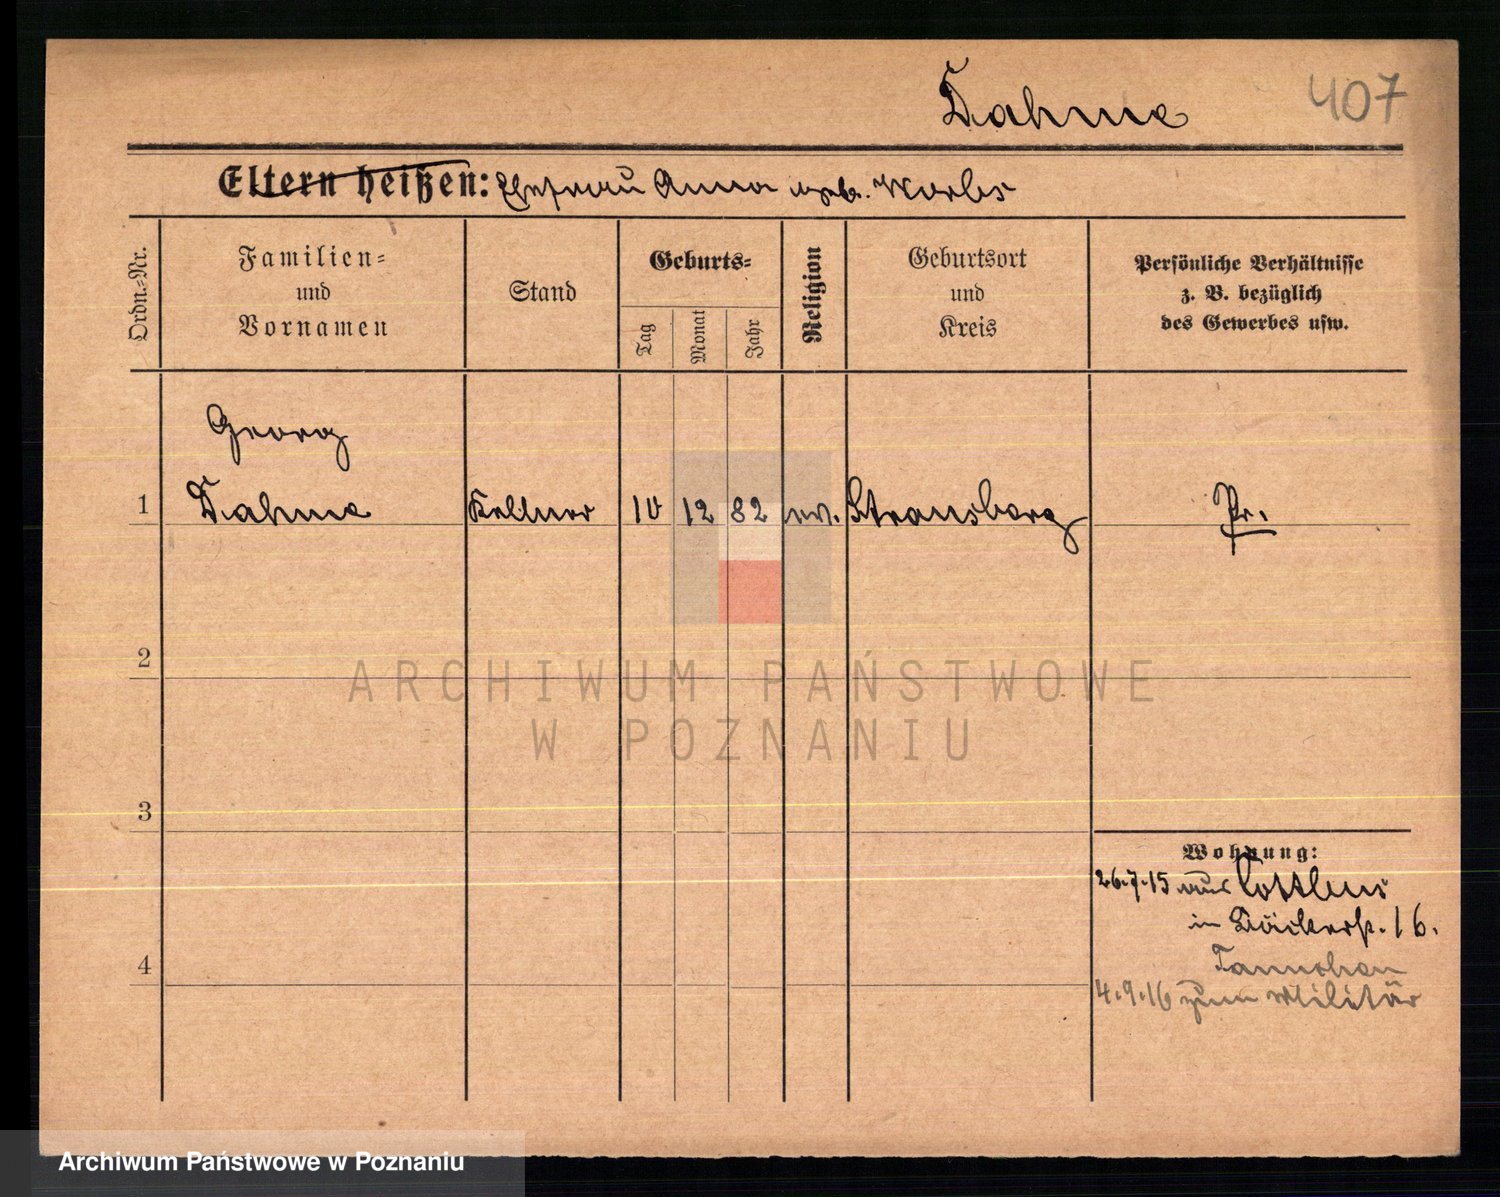 Dahme
407
Eltern heißen: Ehefrau Anna geb. Worbs
Ordn.-Nr.
Familien-
und
Vornamen
Stand
Geburts-
Tag
Monat
Jahr
Religion
Geburtsort
und
Kreis
Persönliche Verhältnisse
z. B. bezüglich
des Gewerbes usw.
Georg
1 Dahme Kellner 10 12 82 ev. Strausberg Pr.
2
ARCHIWUM PAŃSTWOWE
W POZNANIU
3
Wohnung:
26.7.15 aus Cottbus
in Bäckerst. 16.
4
4.9.16 zum Militär
Archiwum Państwowe w Poznaniu